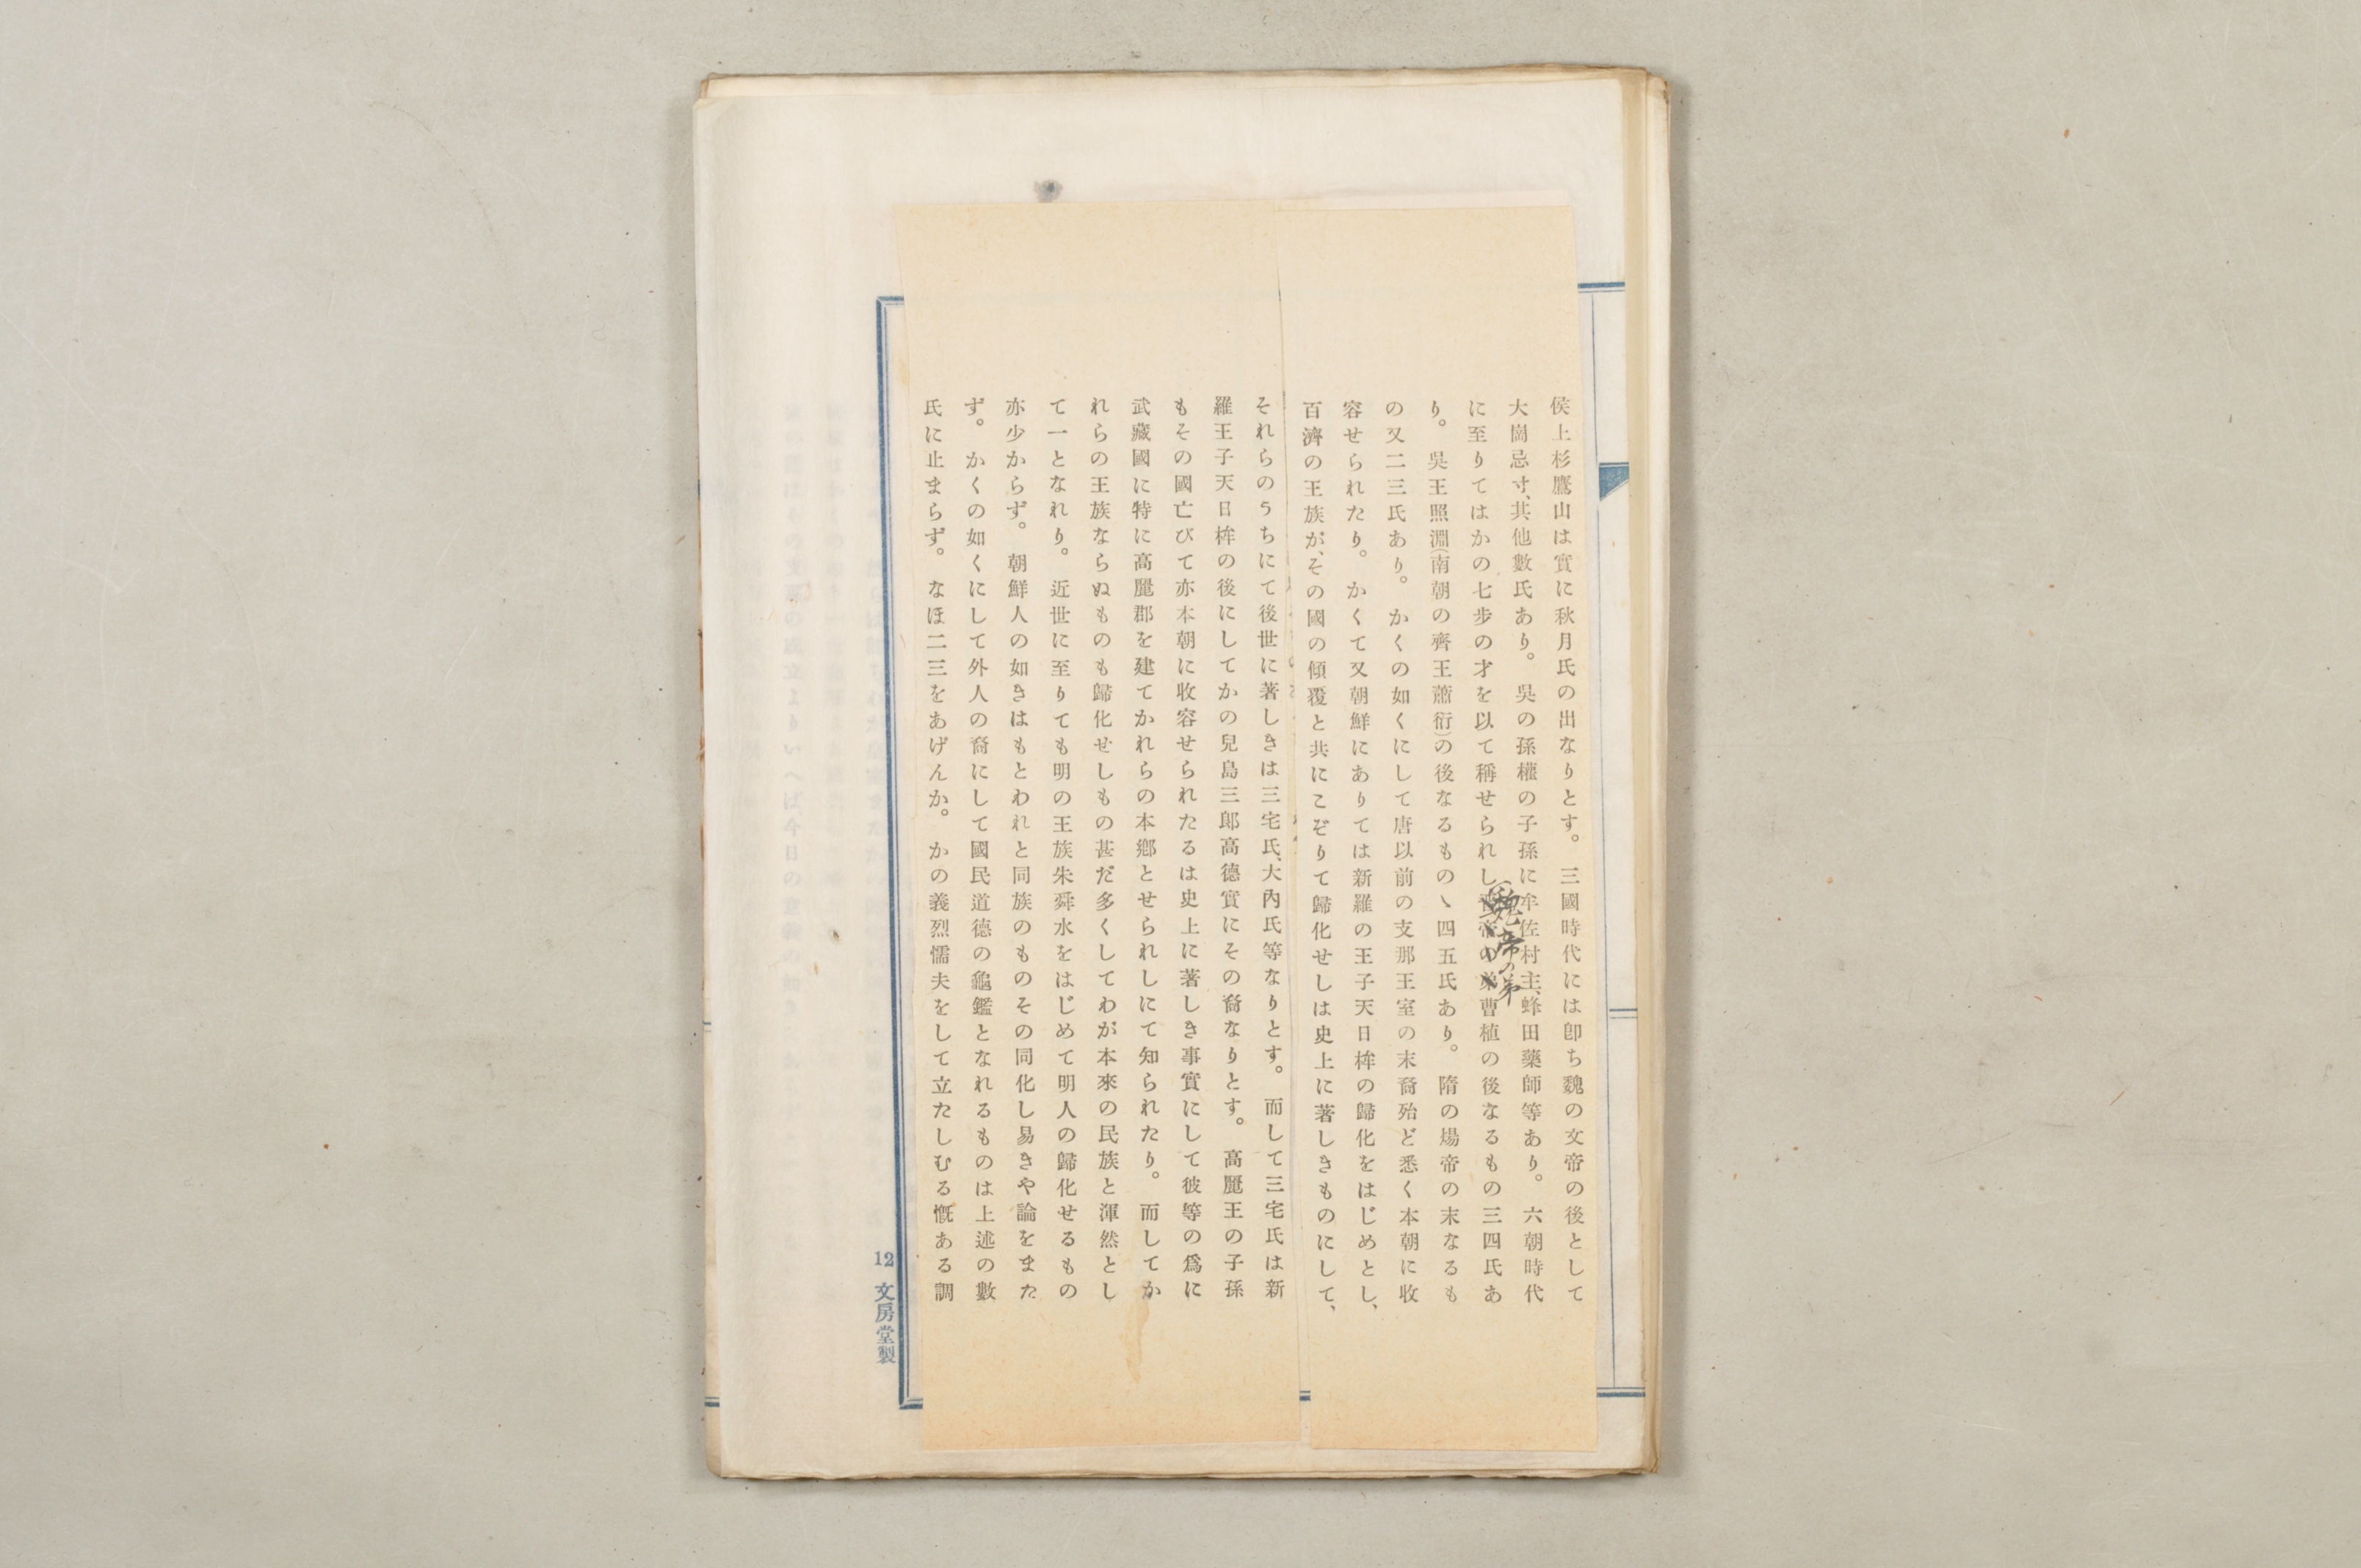 侯上杉鷹山は實に秋月氏の出なりとす。三國時代には卽ち魏の文帝の後として
大崗忌寸、其他數氏あり。吳の孫權の子孫に牟佐村主、蜂田藥師等あり。六朝時代
に至りてはかの七步の才を以て稱せられし帝の弟曹植の後なるもの三四氏あ
魏帝の弟
り。吳王照淵(南朝の齊王蕭衍)の後なるもの丶四五氏あり。隋の煬帝の末なるも
の又二三氏あり。かくの如くにして唐以前の支那王室の末裔殆ど悉く本朝に收
容せられたり。かくて又朝鮮にありては新羅の王子天日桙の歸化をはじめとし、
百濟の王族が、その國の傾覆と共にこぞりて歸化せしは史上に著しきものにして、
それらのうちにて後世に著しきは三宅氏、大內氏等なりとす。而して三宅氏は新
羅王子天日桙の後にしてかの兒島三郞高德實にその裔なりとす。高麗王の子孫
もその國亡びて亦本朝に收容せられたるは史上に著しき事實にして彼等の爲に
武藏國に特に高麗郡を建てかれらの本鄕とせられしにて知られたり。而してか
れらの王族ならぬものも歸化せしもの甚だ多くしてわが本來の民族と渾然とし
て一となれり。近世に至りても明の王族朱舜水をはじめて明人の歸化せるもの
亦少からず。朝鮮人の如きはもとわれと同族のものその同化し易きや論をまた
ず。かくの如くにして外人の裔にして國民道德の龜鑑となれるものは上述の數
氏に止まらず。なほ二三をあげんか。かの義烈懦夫をして立たしむる慨ある調
12 文房堂製